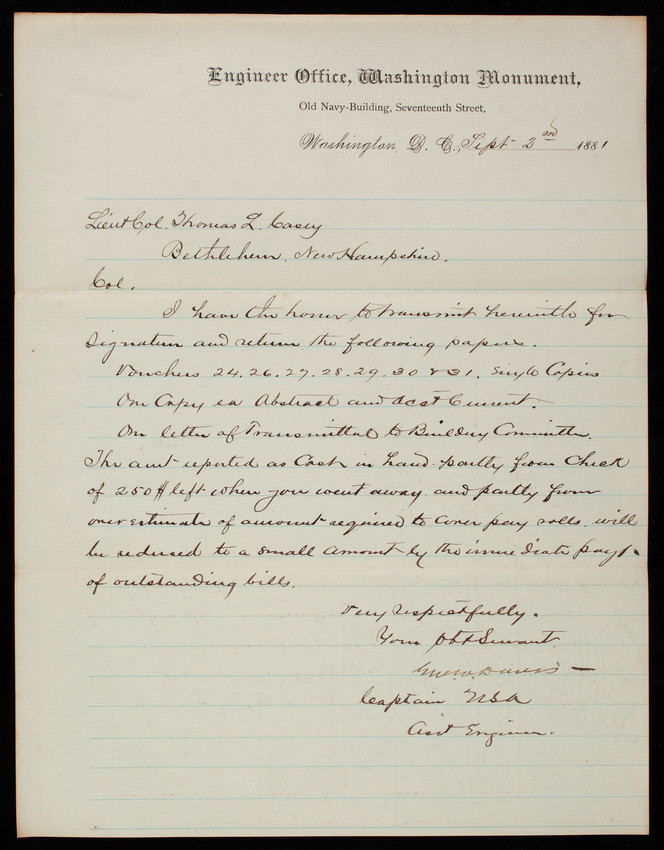 Engineer Office, Washington Monument,
Old Navy-Building, Seventeenth Street,
Washington, D. C., Sept 2nd 1881
Lieut Col. Thomas L. Casey
Bethlehem, New Hampshire.
Col.
I have the honor to transmit herewith for
signature and return the following papers.
Vouchers 24. 26. 27. 28. 29. 30 & 31. Single Copies
One Copy ea Abstract and Acct Current.
One letter of Transmittal to Building Committee.
The amt reported as Cash in hand partly from Check
of 250$ left when you went away and partly from
over estimate of amount required to cover pay rolls will
be reduced to a small amount by the immediate payt.
of outstanding bills.
Very respectfully.
Your Obt Servant.
Geo. W. Davis
Captain USA
Asst Engineer.